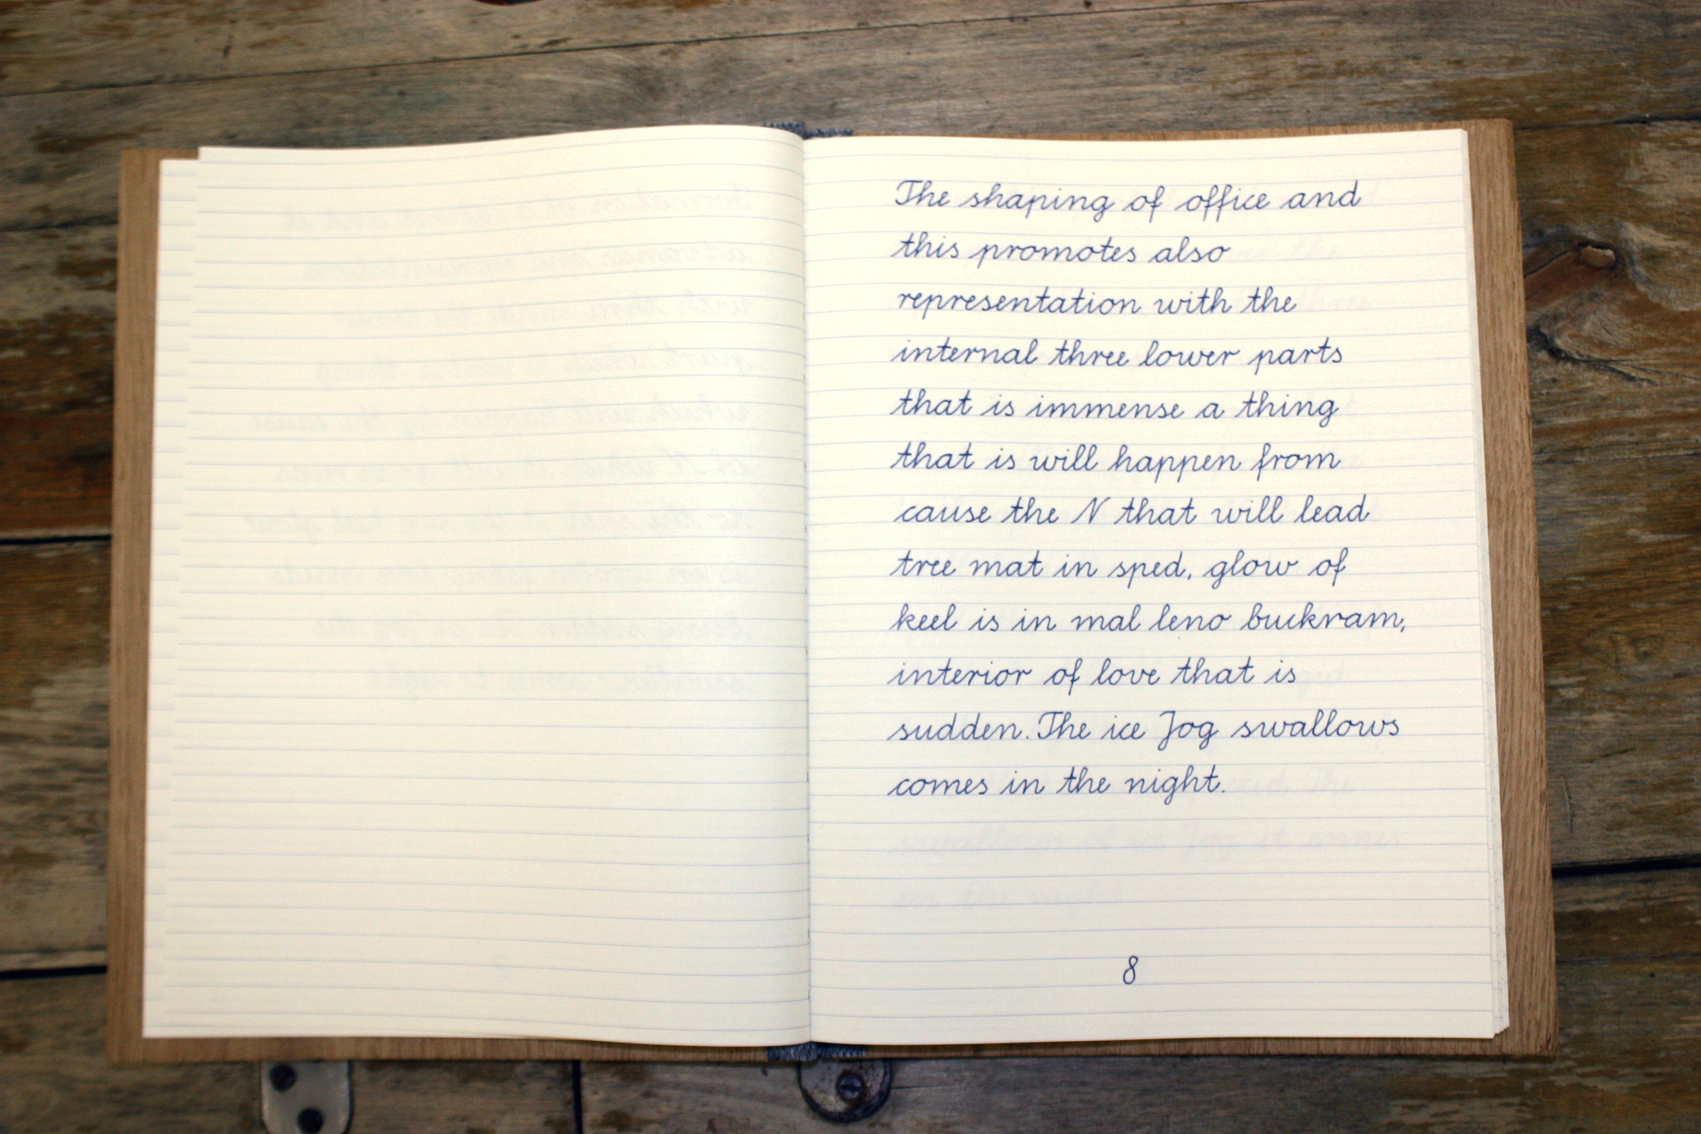 The shaping of office and
this promotes also
representation with the
internal three lower parts
that is immense a thing
that is will happen from
cause the N that will lead
tree mat in sped, glow of
keel is in mal leno buckram,
interior of love that is
sudden. The ice Jog swallows
comes in the night.
8